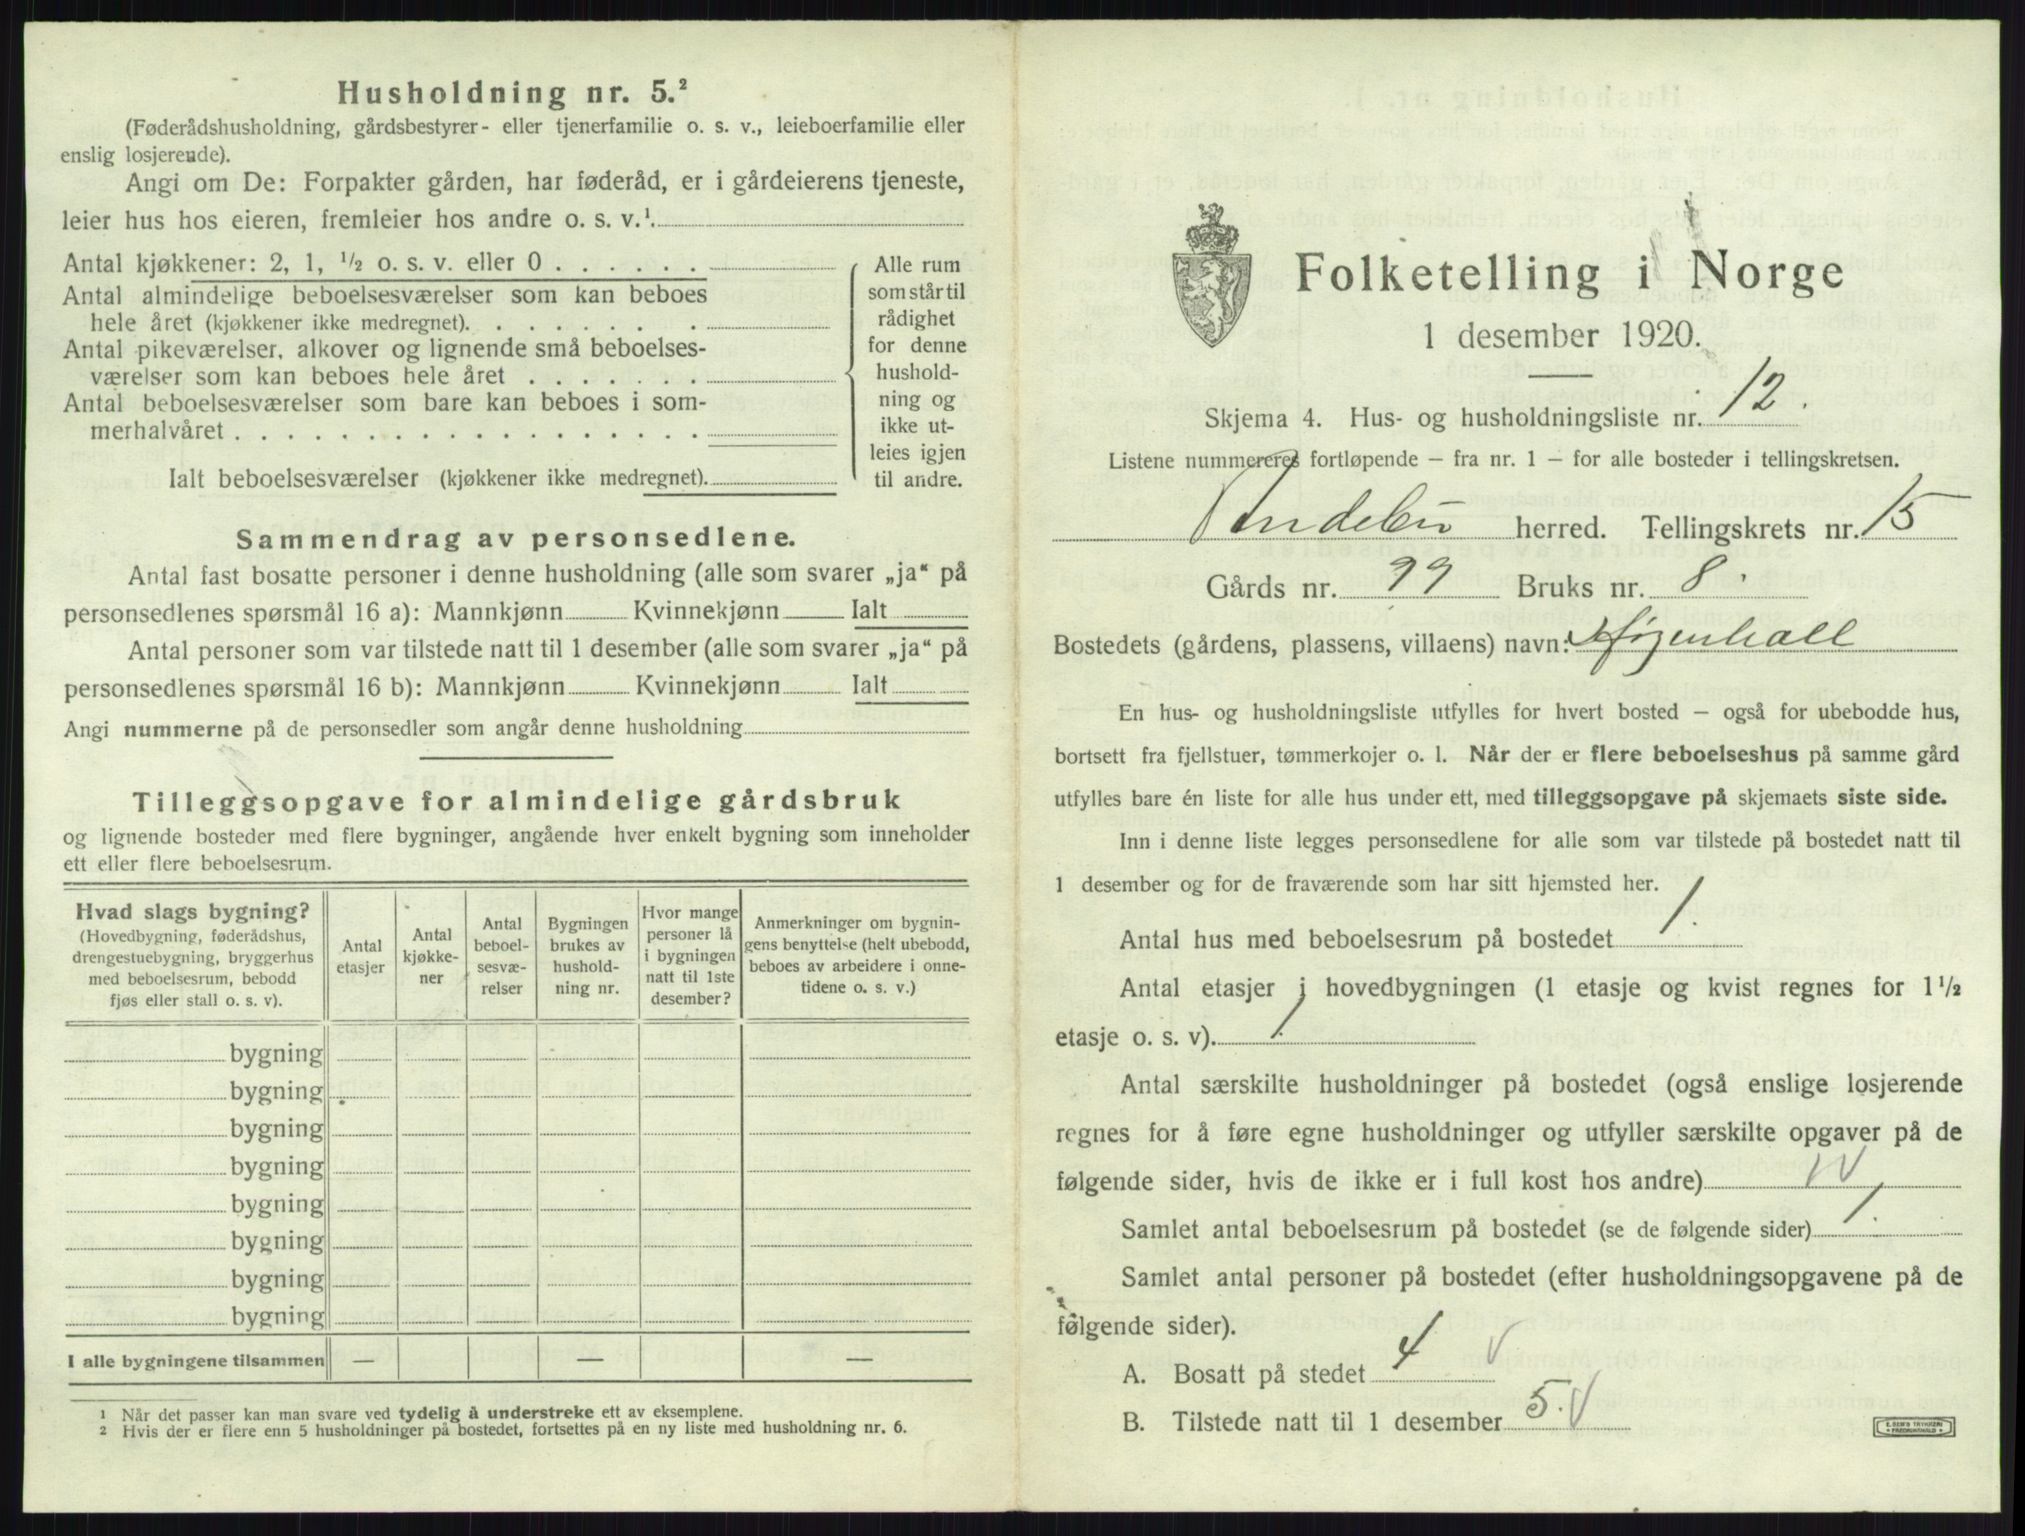 Husholdning nr. 5.²
(Føderådshusholdning, gårdsbestyrer- eller tjenerfamilie o. s. v., leieboerfamilie eller
enslig losjerende).
Angi om De: Forpakter gården, har føderåd, er i gårdeierens tjeneste,
leier hus hos eieren, fremleier hos andre o. s. v.¹.
Antal kjøkkener: 2, 1, ½ o. s. v. eller 0 . . . . . .
Antal almindelige beboelsesværelser som kan beboes
hele året (kjøkkener ikke medregnet). . . . . . . .
Antal pikeværelser, alkover og lignende små beboelses-
værelser som kan beboes hele året . . . . . . .
Antal beboelsesværelser som bare kan beboes i som-
merhalvåret . . . . . . . . . . . . . . . . . .
Ialt beboelsesværelser (kjøkkener ikke medregnet).
Alle rum
som står til
rådighet
for denne
hushold-
ning og
ikke ut-
leies igjen
til andre.
Sammendrag av personsedlene.
Antal fast bosatte personer i denne husholdning (alle som svarer „ja“ på
personsedlenes spørsmål 16 a): Mannkjønn Kvinnekjønn Ialt
Antal personer som var tilstede natt til 1 desember (alle som svarer „ja“ på
personsedlenes spørsmål 16 b): Mannkjønn Kvinnekjønn Ialt
Angi nummerne på de personsedler som angår denne husholdning
Tilleggsopgave for almindelige gårdsbruk
og lignende bosteder med flere bygninger, angående hver enkelt bygning som inneholder
ett eller flere beboelsesrum.
Hvad slags bygning?
(Hovedbygning, føderådshus,
drengestuebygning, bryggerhus
med beboelsesrum, bebodd
fjøs eller stall o. s. v).
Antal
etasjer
Antal
kjøkke-
ner
Antal
beboel-
sesvæ-
relser
Bygningen
brukes av
hushold-
ning nr.
Hvor mange
personer lå
i bygningen
natt til 1ste
desember?
Anmerkninger om bygnin-
gens benyttelse (helt ubebodd,
beboes av arbeidere i onne-
tidene o. s. v.)
bygning
bygning
bygning
bygning
bygning
bygning
bygning
bygning
I alle bygningene tilsammen — — —
¹ Når det passer kan man svare ved tydelig å understreke ett av eksemplene.
² Hvis der er flere enn 5 husholdninger på bostedet, fortsettes på en ny liste med husholdning nr. 6.
Folketelling i Norge
1 desember 1920.
Skjema 4. Hus- og husholdningsliste nr. 12.
Listene nummereres fortløpende – fra nr. 1 – for alle bosteder i tellingskretsen.
Andebu herred. Tellingskrets nr. 15
Gårds nr. 99 Bruks nr. 8.
Bostedets (gårdens, plassens, villaens) navn:
En hus- og husholdningsliste utfylles for hvert bosted – også for ubebodde hus,
bortsett fra fjellstuer, tømmerkojer o. l. Når der er flere beboelseshus på samme gård
utfylles bare én liste for alle hus under ett, med tilleggsopgave på skjemaets siste side.
Inn i denne liste legges personsedlene for alle som var tilstede på bostedet natt til
1 desember og for de fraværende som har sitt hjemsted her.
Antal hus med beboelsesrum på bostedet 1.
Antal etasjer i hovedbygningen (1 etasje og kvist regnes for 1½
etasje o. s. v). 1.
Antal særskilte husholdninger på bostedet (også enslige losjerende
regnes for å føre egne husholdninger og utfyller særskilte opgaver på de
følgende sider, hvis de ikke er i full kost hos andre)
Samlet antal beboelsesrum på bostedet (se de følgende sider) 1.
Samlet antal personer på bostedet (efter husholdningsopgavene på de
følgende sider).
A. Bosatt på stedet 4
B. Tilstede natt til 1 desember 5.
E. SEM'S TRYKKERI
FREDRIKSHALD